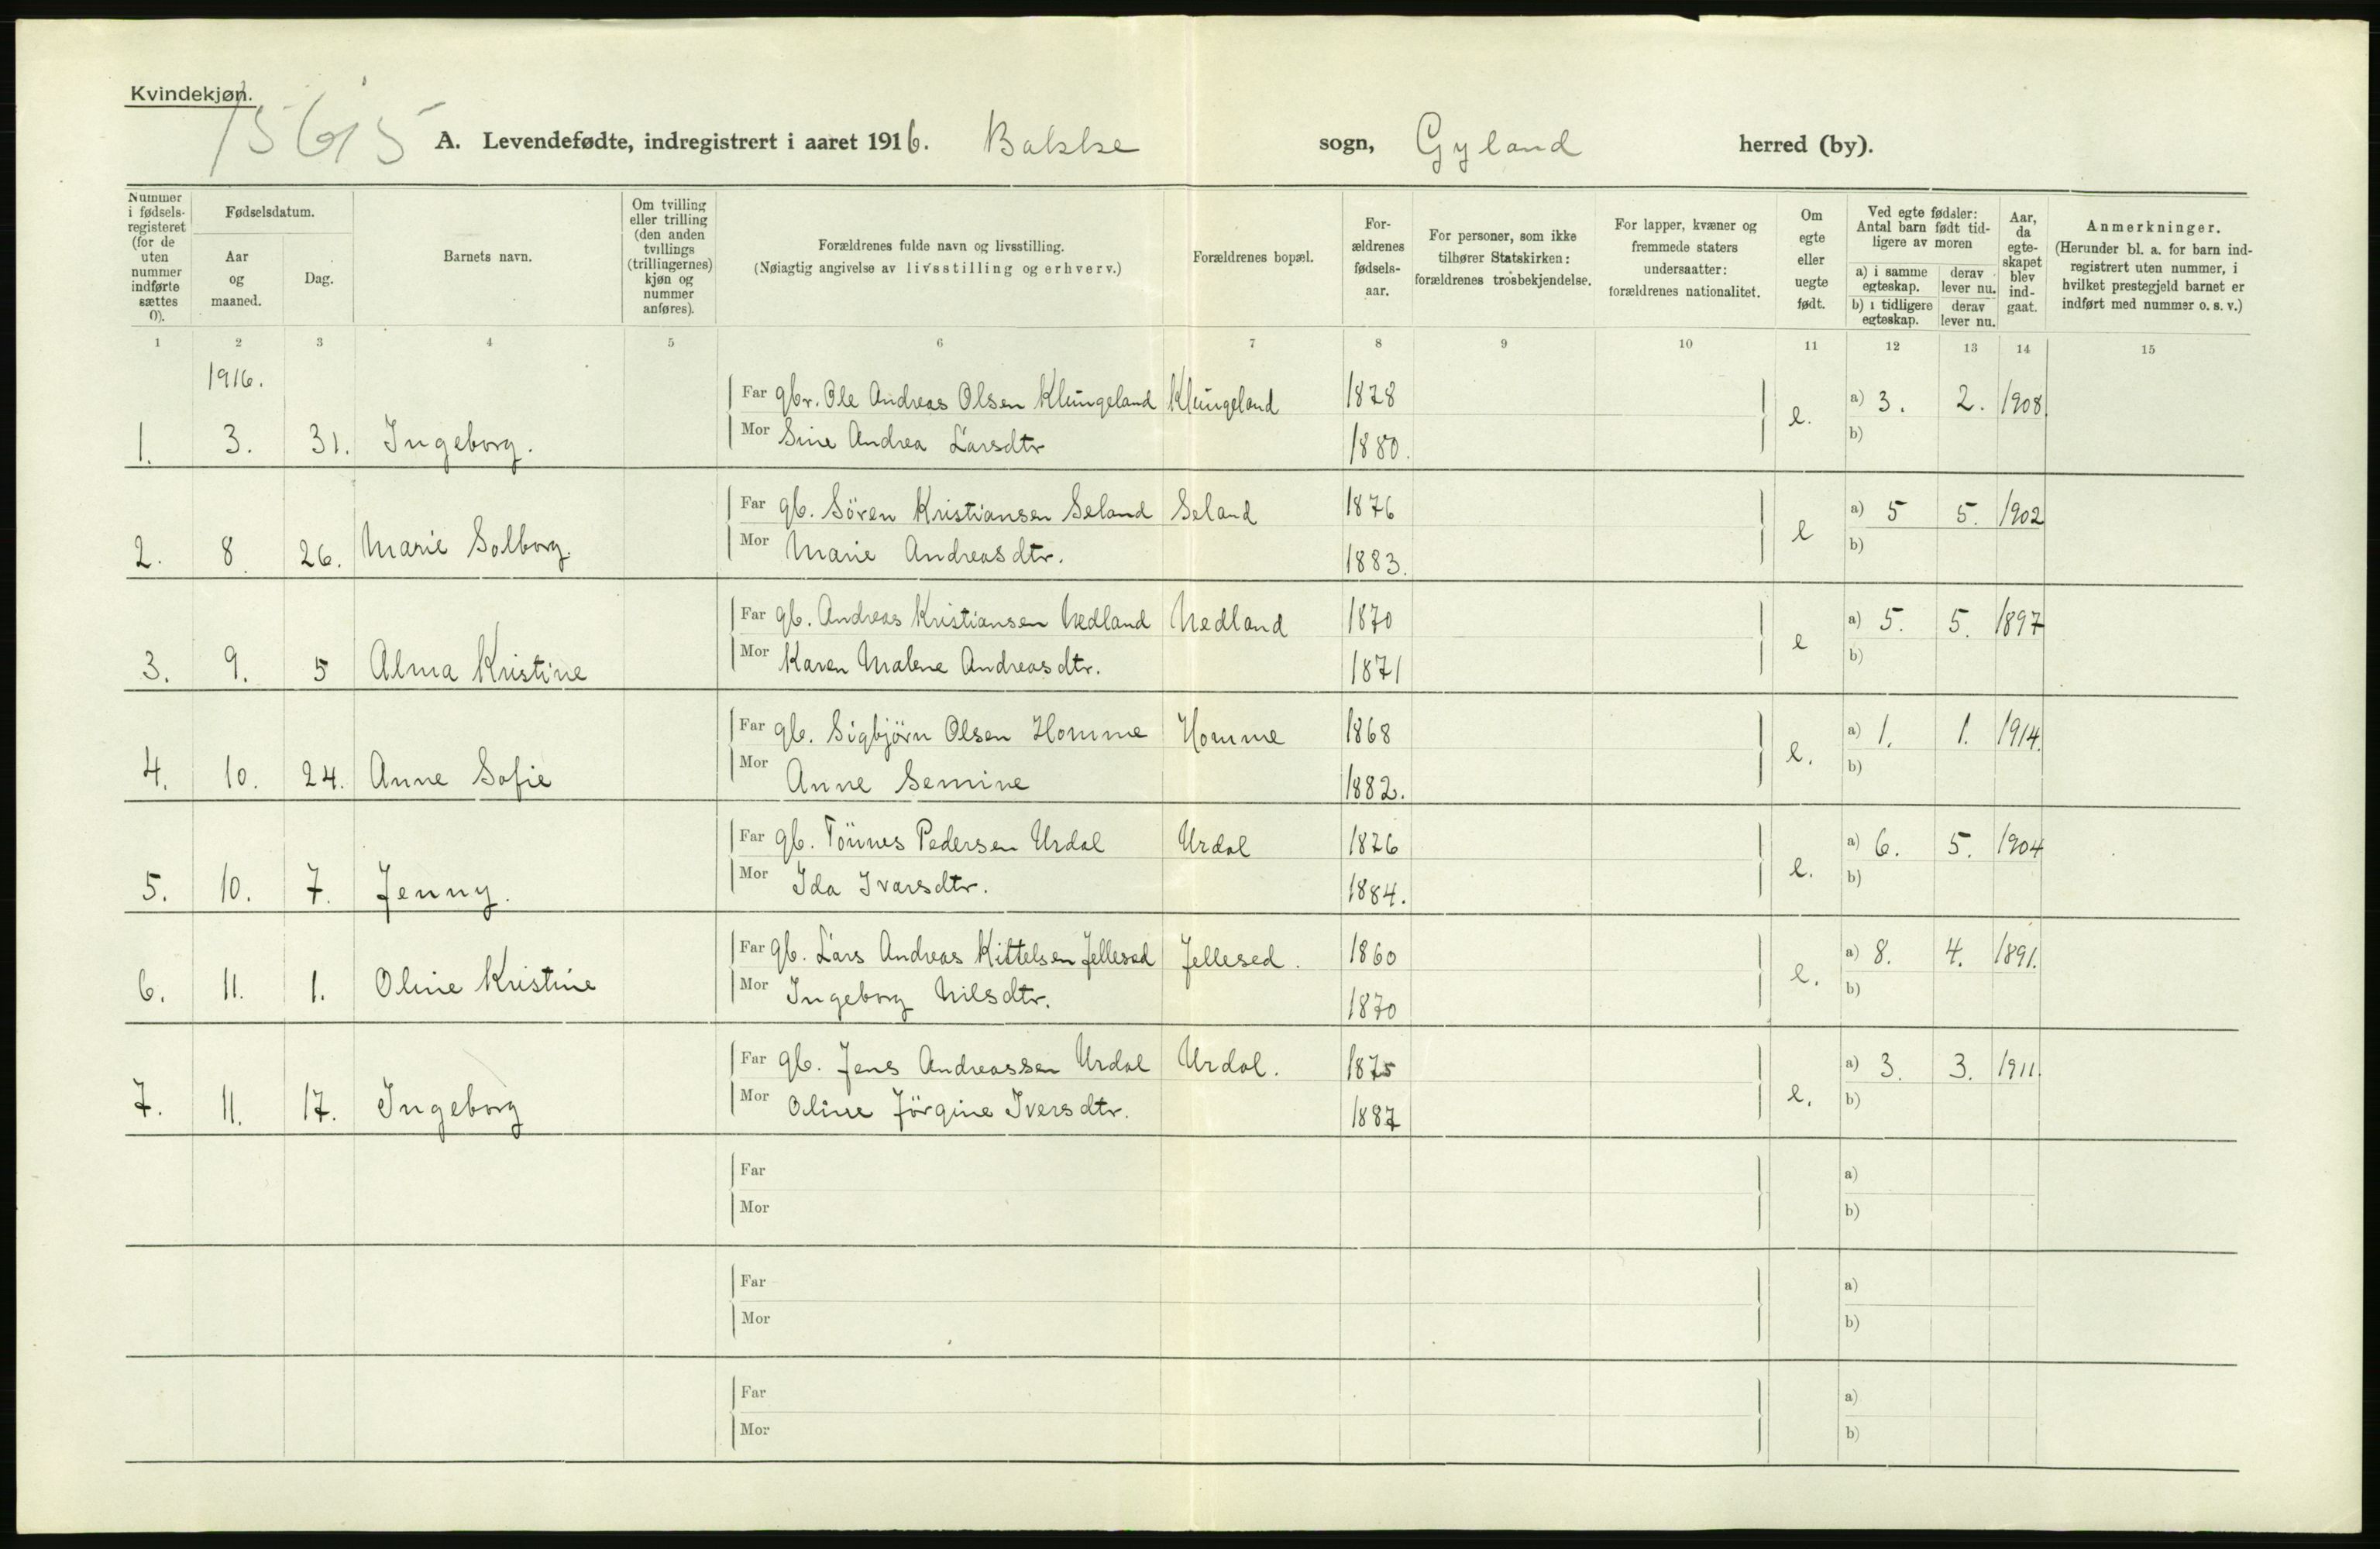 Kvindekjøn.
15615
A. Levendefødte, indregistrert i aaret 1916. Bakke sogn, Gyland herred (by).
Nummer i fødsels-registeret (for de uten nummer indførte sættes 0).
Fødselsdatum.
Aar og maaned.
Dag.
Barnets navn.
Om tvilling eller trilling (den anden tvillings (trillingernes) kjøn og nummer anføres).
Forældrenes fulde navn og livsstilling.
(Nøiagtig angivelse av livsstilling og erhverv.)
Forældrenes bopæl.
For-ældrenes fødsels-aar.
For personer, som ikke tilhører Statskirken: forældrenes trosbekjendelse.
For lapper, kvæner og fremmede staters undersaatter: forældrenes nationalitet.
Om egte eller uegte født.
Ved egte fødsler: Antal barn født tid-ligere av moren
a) i samme egteskap.
derav lever nu.
b) i tidligere egteskap.
derav lever nu.
Aar, da egte-skapet blev ind-gaat.
Anmerkninger.
(Herunder bl. a. for barn ind-registrert uten nummer, i hvilket prestegjeld barnet er indført med nummer o. s. v.)
1 2 3 4 5 6 7 8 9 10 11 12 13 14 15
1916.
Far gbr. Ole Andreas Olsen Klungeland Klungeland 1878 a) 3. 2. 1908
1. 3. 31. Ingeborg. Mor Sine Andrea Larsdtr 1880. e. b)
Far gb. Sören Kristiansen Seland Seland 1876 a) 5 5. 1902
2. 8. 26. Marie Solborg. Mor Marie Andreasdtr. 1883. e b)
Far gb. Andreas Kristiansen Nedland Nedland 1870 a) 5. 5. 1897
3. 9. 5 Alma Kristine Mor Karen Malene Andreasdtr. 1871 e b)
Far gb. Sigbjörn Olsen Homme Homme 1868 a) 1. 1. 1914.
4. 10. 24. Anne Sofie Mor Anne Semine 1882. e. b)
Far gb. Tönnes Pedersen Urdal Urdal 1876 a) 6. 5. 1904
5. 10. 7. Jenny. Mor Ida Ivarsdtr. 1884. e. b)
Far gb. Lars Andreas Kittelsen Jellesed Jellesed. 1860 a) 8. 4. 1891.
6. 11. 1. Oline Kristine Mor Ingeborg Nilsdtr. 1870 e. b)
Far gb. Jens Andreassen Urdal Urdal. 1875 a) 3. 3. 1911.
7. 11. 17. Ingeborg Mor Oline Jörgine Iversdtr. 1887 e. b)
Far a)
Mor b)
Far a)
Mor b)
Far a)
Mor b)